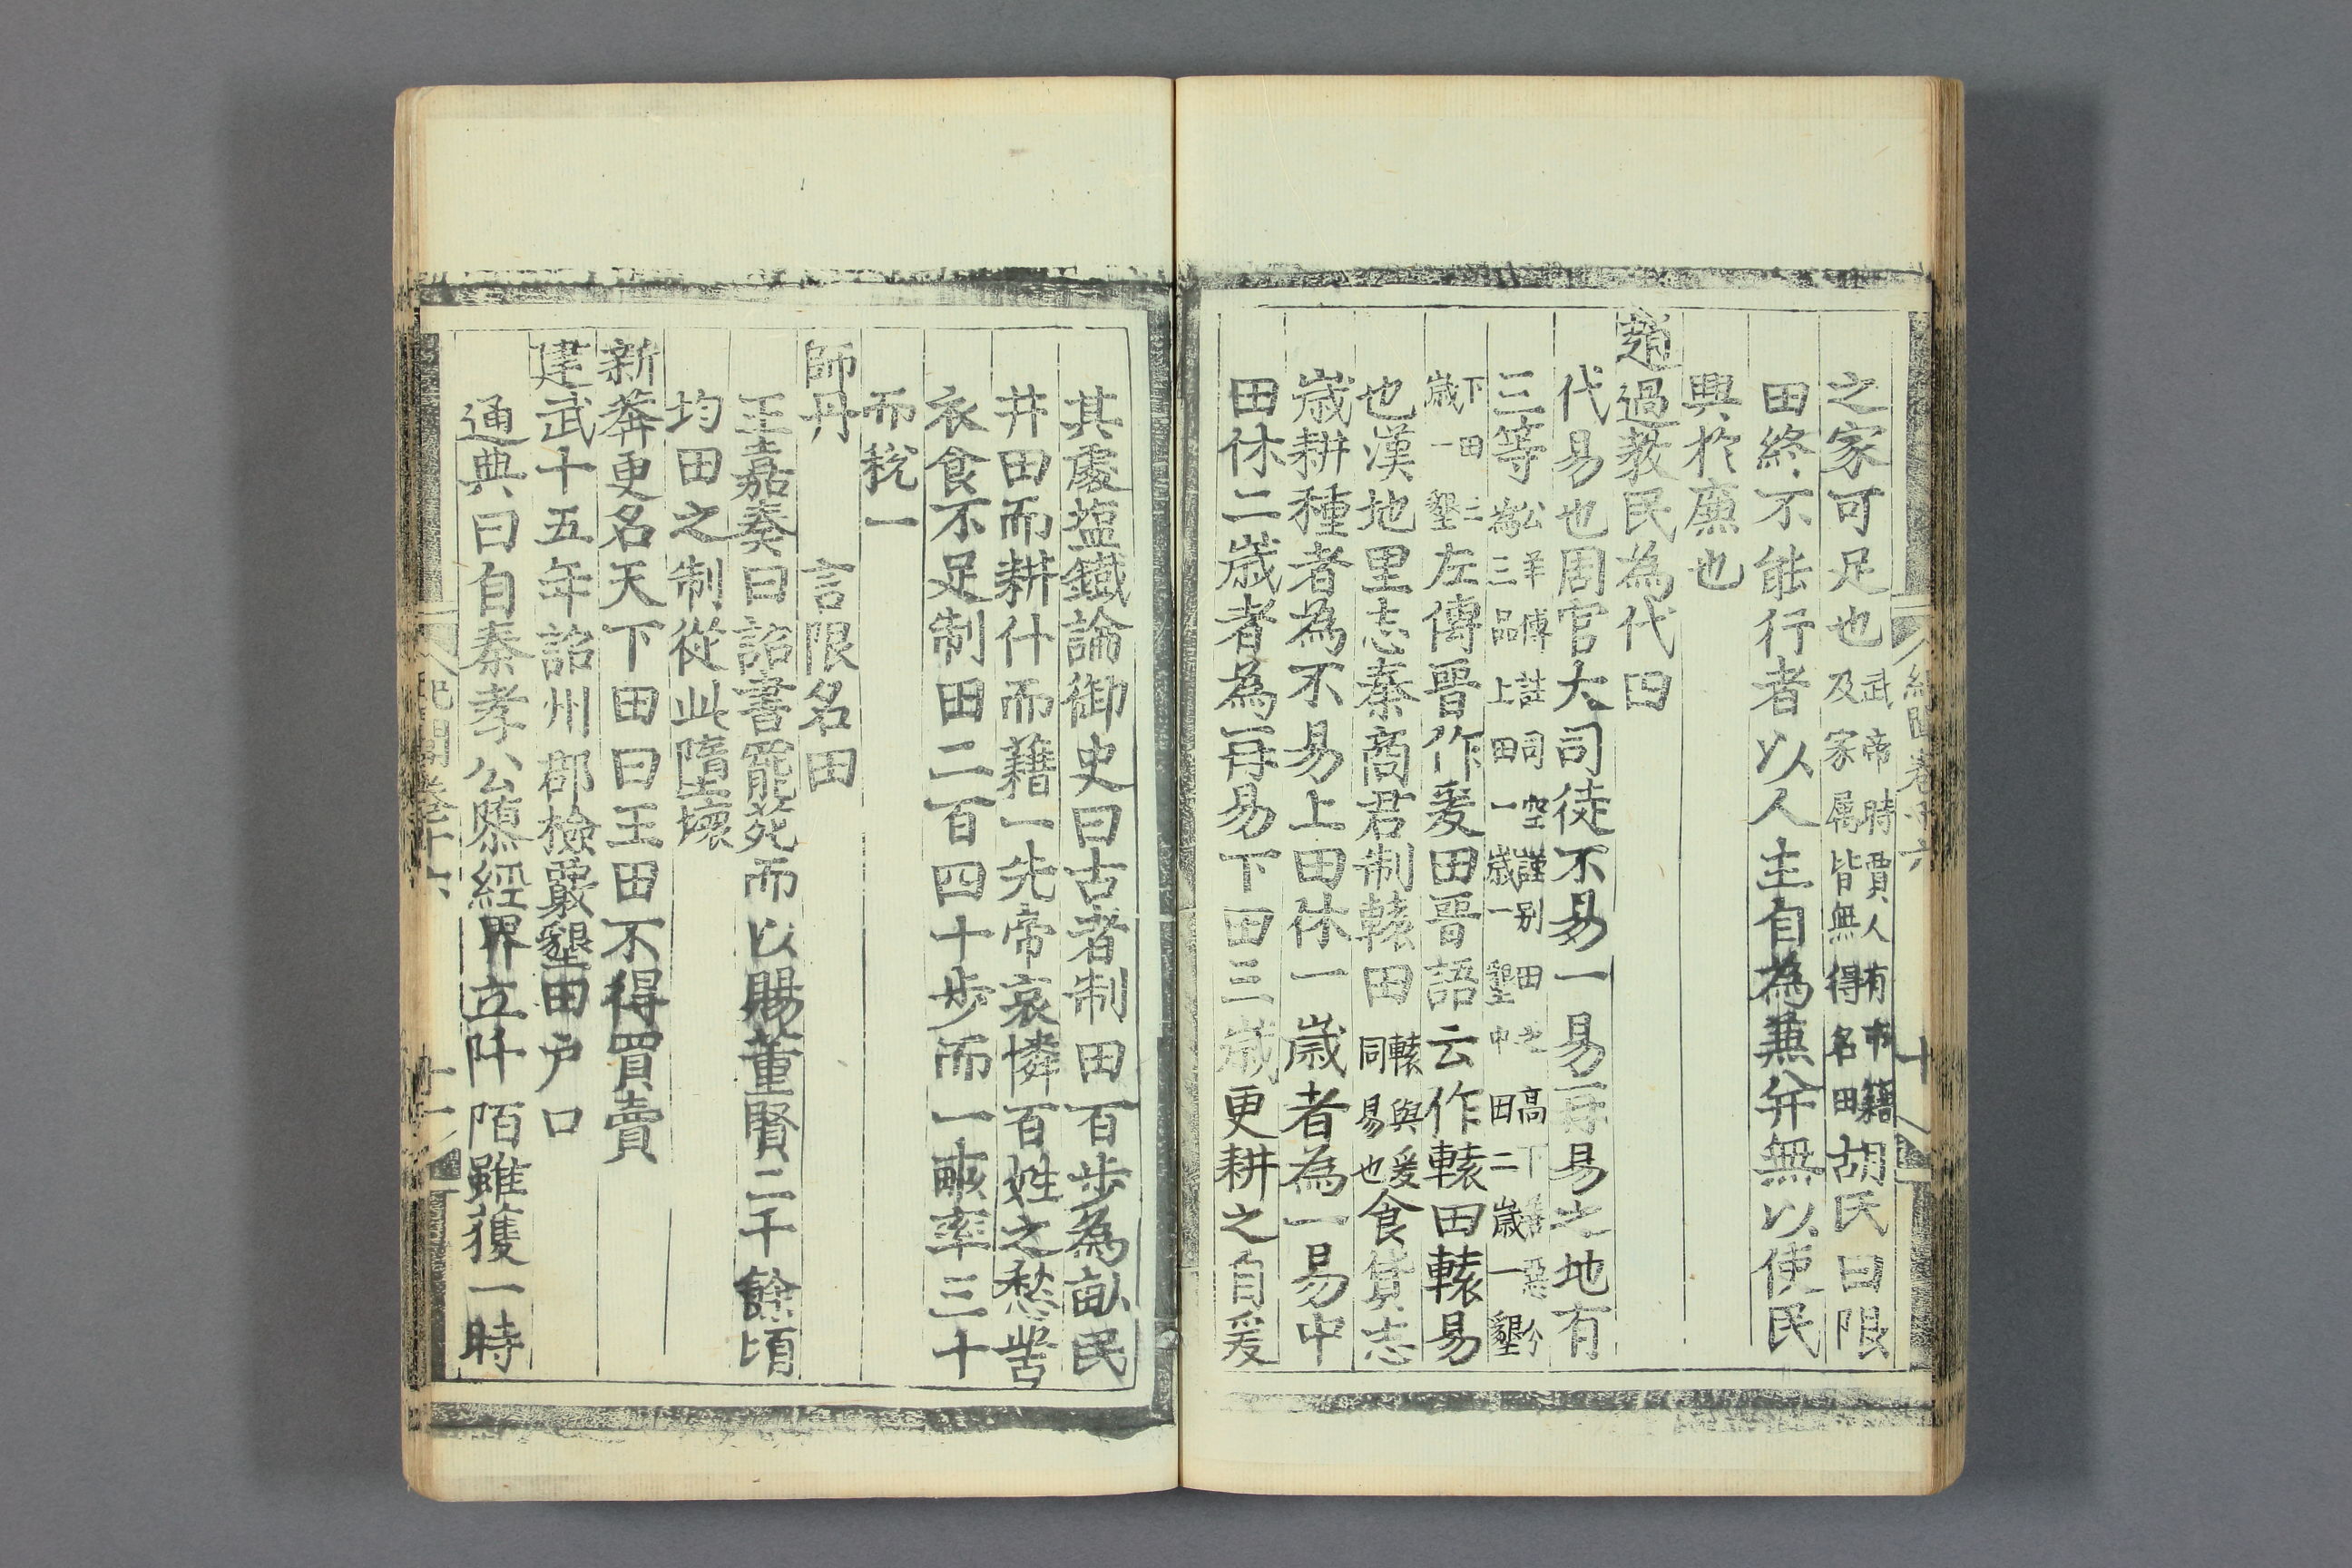 之家可足也武帝時賈人有市籍及家属皆無得名田胡氏曰限
田終不能行者以人主自為兼并無以使民
興於廉也
趙過教民為代田
代易也周官大司徒不易一易再易之地有
三等公羊傳註司空謹别田之高下善惡分為三品上田一歲一墾中田二歲一墾
下田三歲一墾左傳晉作爰田晉語云作轅田轅易
也漢地里志秦商君制轅田轅與爰同易也食貨志
歲耕種者為不易上田休一歲者為一易中
田休二歲者為再易下田三歲更耕之自爰
其處塩鐵論御史曰古者制田百步為畝民
井田而耕什而藉一先帝哀憐百姓之愁苦
衣食不足制田二百四十步而一畝率三十
而稅一
師丹 言限名田
王嘉奏曰詔書罷苑而以賜董賢二千餘頃
均田之制從此墮壞
新莽更名天下田曰王田不得買賣
建武十五年詔州郡檢覈墾田户口
通典曰自秦孝公隳經界立阡陌雖獲一時
紀聞卷十六 十
紀聞卷十六 十一